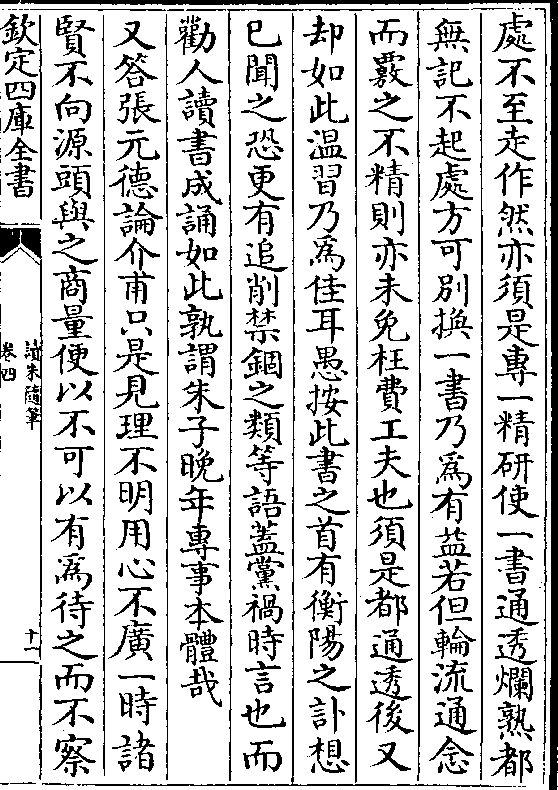 處不至走作然亦須是專一精研使一書通透爛熟都
無記不起處方可别換一書乃爲有益若但輪流通念
而覈之不精則亦未免枉費工夫也須是都通透後又
却如此温習乃爲佳耳愚按此書之首有衡陽之訃想
已聞之恐更有追削禁錮之類等語蓋黨禍時言也而
勸人讀書成誦如此孰謂朱子晚年專事本體哉
又答張元德論介甫只是見理不明用心不廣一時諸
賢不向源頭與之商量便以不可以有爲待之而不察
欽定四庫全書
讀朱隨筆
卷四
十一